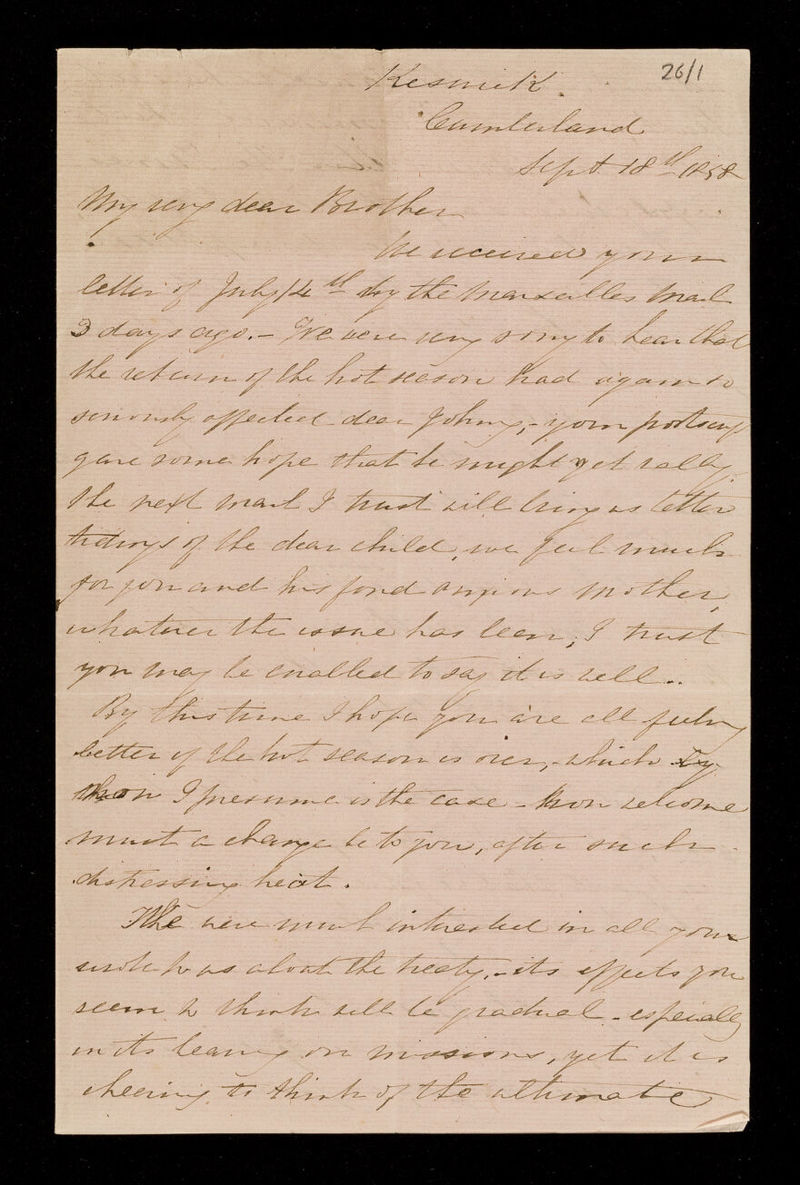 26/1
Keswick.
Cumberland
Sept. 18th 1858
My very dear Brother
We received your
letter of July 14th by the Marseilles Mail
3 days ago. - We were very sorry to hear that
the return of the hot season had again so
seriously affected dear Johny, - your postscript
gave some hope that he might yet rally.
the next mail I trust will bring us better
tidings of the dear child, we feel much
for you and his fond anxious Mother,
whatever the issue has been; I trust
you may be enabled to say it is well..
By this time I hope you are all feeling
better if the hot season is over, - which by
then I presume is the case - How welcome
must a change be to you, after such
distressing heat.
We were much interested in all you
wrote to us about the treaty, - its effects you
seem to think will be gradual - especially
in its bearing on missions, yet it is
cheering to think of the ultimate